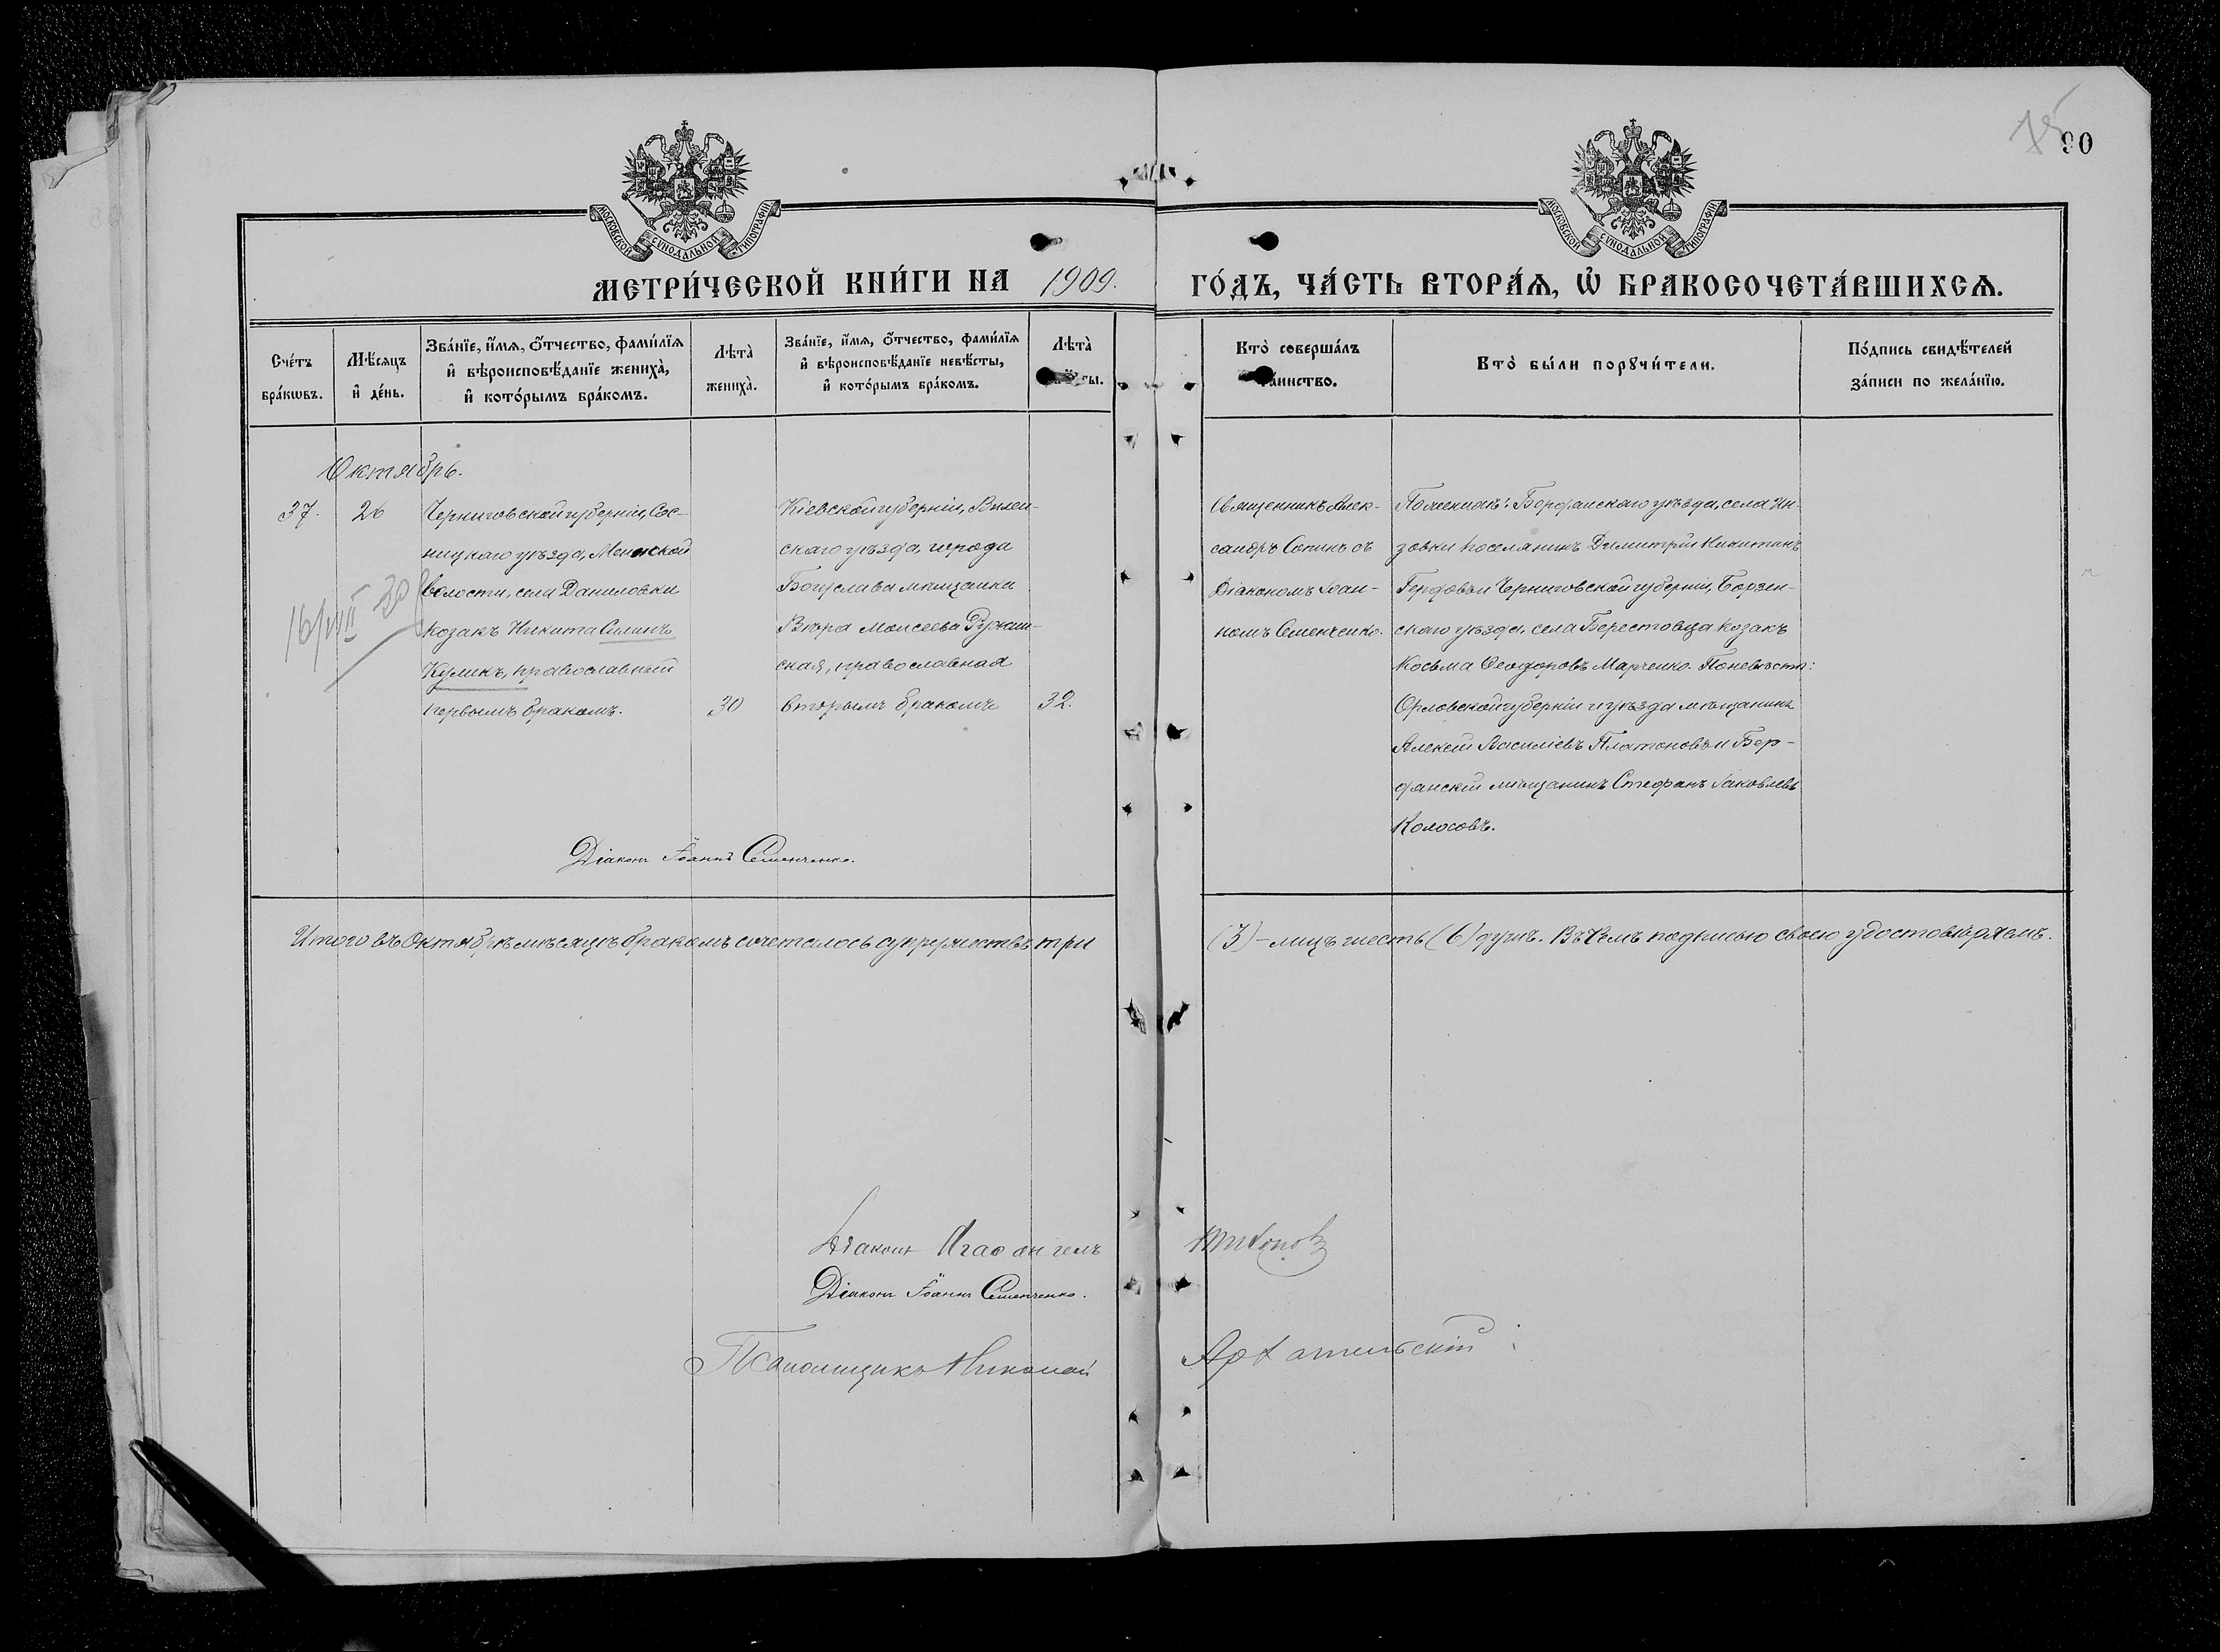 90
МОСКОВСКОЙ СѴНОДАЛЬНОЙ ТИПОГРАФІИ
МОСКОВСКОЙ СѴНОДАЛЬНОЙ ТИПОГРАФІИ
МЕТРИ́ЧЕСКОЙ КНИ́ГИ НА 1909. ГО́ДЪ, ЧА́СТЬ ВТОРА́Ѧ, Ѽ БРАКОСОЧЕТА́ВШИХСѦ.
Сче́тъ
бра́кѡвъ.
Мѣ́сѧцъ
и҆ де́нь.
Зва́нїе, и҆́мѧ, ѻ҆́тчество, фамилїѧ
и҆ вѣроисповѣ́данїе жениха̀,
и҆ кото́рымъ бра́комъ.
Лѣта̀
жениха̀.
Зва́нїе, и҆́мѧ, ѻ҆́тчество, фами́лїѧ
и҆ вѣроисповѣ́данїе невѣ́сты,
и҆ кото́рымъ бра́комъ.
Лѣта̀
Кто̀ соверша́лъ
та́инство.
Кто̀ бы́ли порꙋчи́тели.
По́дпись свидѣ́телей
за́писи по жела́нїю.
Октябрь.
37.
26
Черниговской губерніи, Сос-
ницкаго уѣзда, Менской
волости, села Даниловки
козакъ Никита Силинъ
Куликъ, православный
первымъ бракомъ.
30
Кіевской губерніи,
скаго уѣзда, города
Богуслава мѣщанка
Вѣра Моисеева
ская, православная
вторымъ бракомъ
32.
Священникъ Алек-
сандръ Сопинъ съ
Діакономъ Іоан-
номъ Семенченко.
По женихѣ: Бердянскаго уѣзда, села Ин-
зовки поселянинъ Димитрій Никитинъ
и Черниговской губерніи, Борзен-
скаго уѣзда, села Берестовца козакъ
Косьма Ѳеодоровъ Марченко. По невѣстѣ:
Орловской губерніи и уѣзда мѣщанинъ
Алексій Василіевъ Платоновъ и Бер-
дянскій мѣщанинъ Стефанъ Іаковлевъ
Колосовъ.
Діаконъ Іоаннъ Семенченко.
Итого въ Октябрѣ мѣсяцѣ бракомъ сочеталось супружествъ три (3) - лицъ шесть (6) душъ. Въ чемъ подписью своею удостовѣряемъ.
Діаконъ
Діаконъ Іоаннъ Семенченко.
Псаломщикъ Николай
16/VII 20